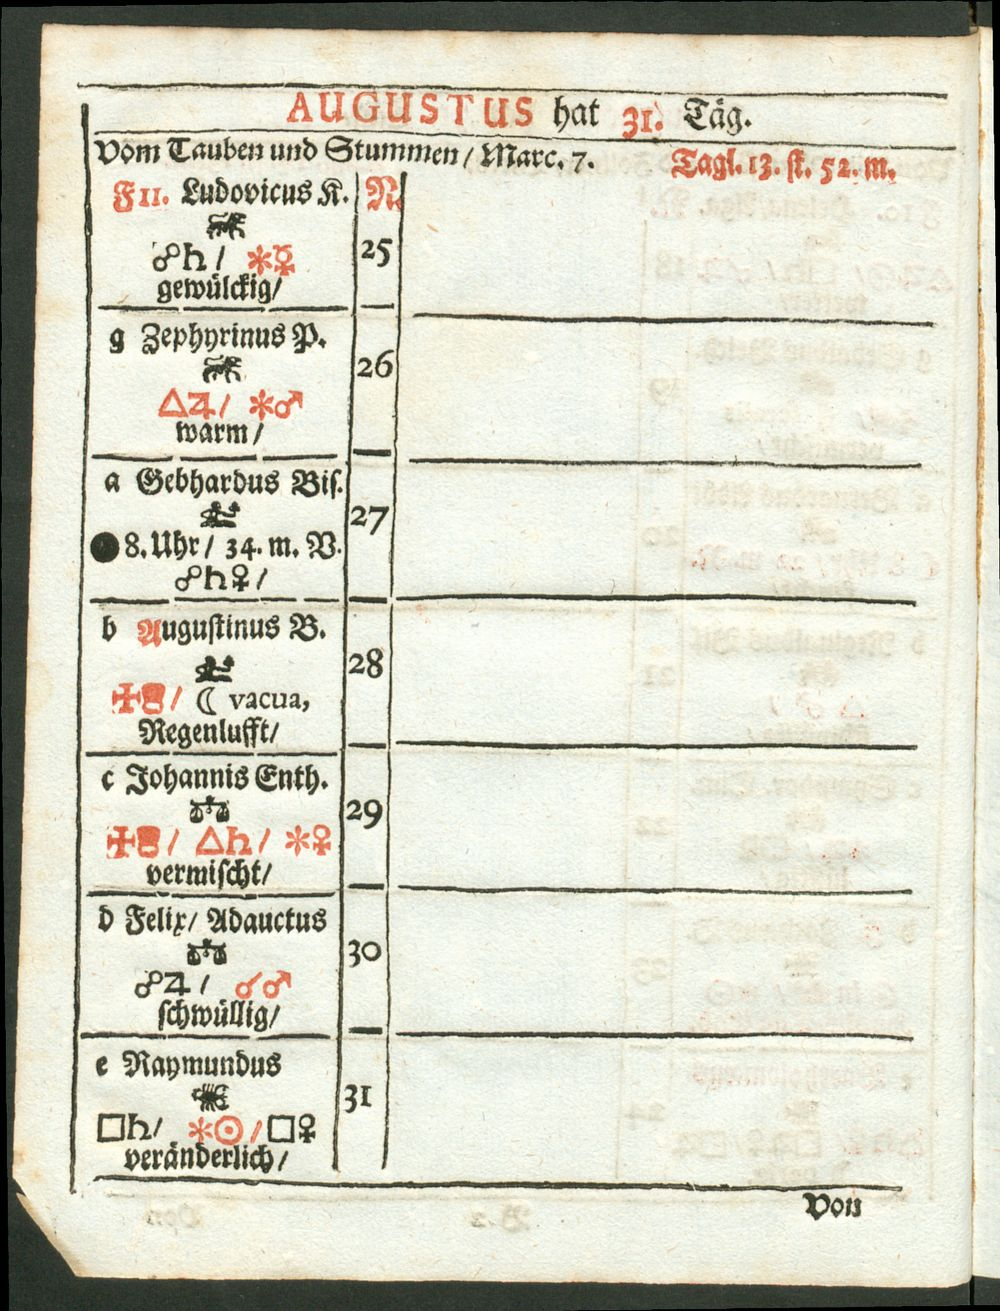 AUGUSTUS hat 31. Täg.
Vom Tauben und Stummen / Marc. 7. Tagl. 13. st. 52. m.
F 11. Ludovicus K. N.
☍♄ / ⚹☿ 25
gewülckig/
g Zephyrinus P.
26
△♃ / ⚹♂
warm /
a Gebhardus Bis.
27
●8. Uhr / 34. m. V.
☍♄♀ /
b Augustinus B.
28
✠ / ☾ vacua,
Regenlufft/
c Johannis Enth.
29
✠ / △♄ / ⚹♀
vermischt/
d Felix/ Adauctus
30
☍♃ / ☌♂
schwüllig/
e Raymundus
31
□♄/ ⚹☉ / □♀
veränderlich /
Von